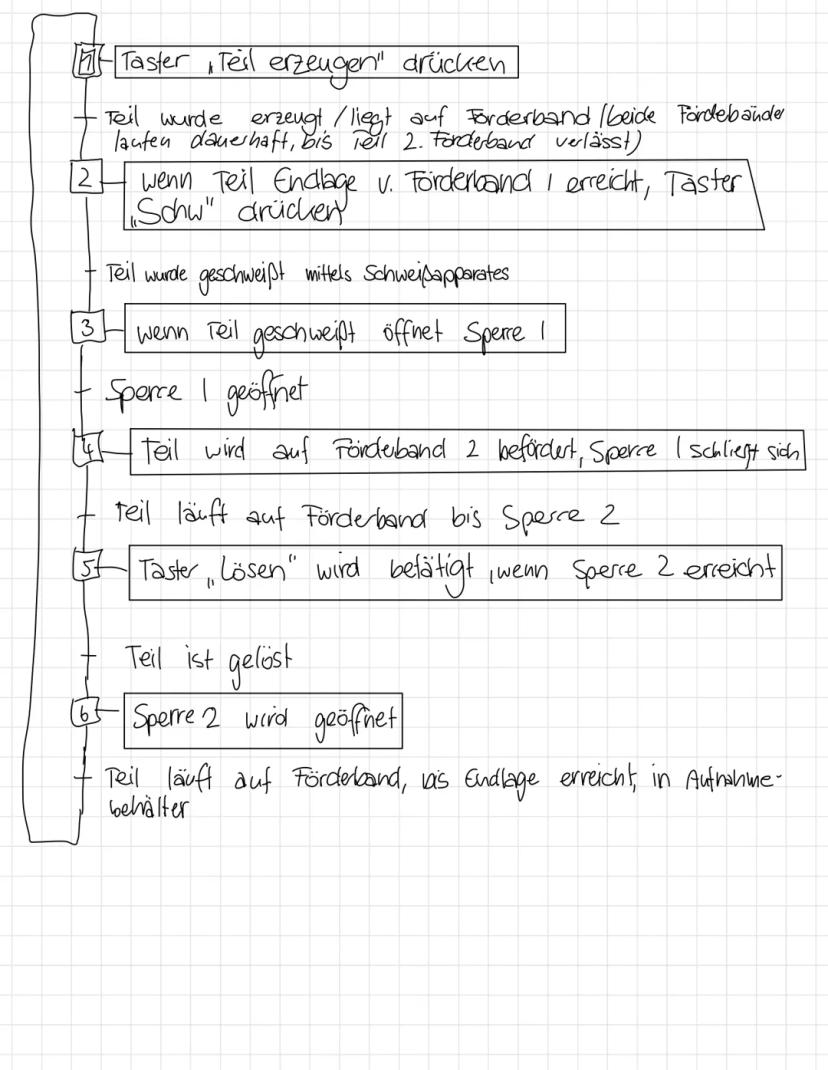 1 Taster „Teil erzeugen" drücken
Teil wurde erzeugt / liegt auf Förderband (beide Fördebänder
laufen dauerhaft, bis Teil 2. Förderband verlässt)
2 wenn Teil Endlage v. Förderband 1 erreicht, Taster
„Schw" drücken
Teil wurde geschweißt mittels Schweißapparates
3 wenn Teil geschweißt öffnet Sperre 1
Sperre 1 geöffnet
4 Teil wird auf Förderband 2 befördert, Sperre 1 schließt sich
Teil läuft auf Förderband bis Sperre 2
5 Taster „Lösen" wird betätigt, wenn Sperre 2 erreicht
Teil ist gelöst
6 Sperre 2 wird geöffnet
Teil läuft auf Förderband, bis Endlage erreicht, in Aufnahme-
behälter